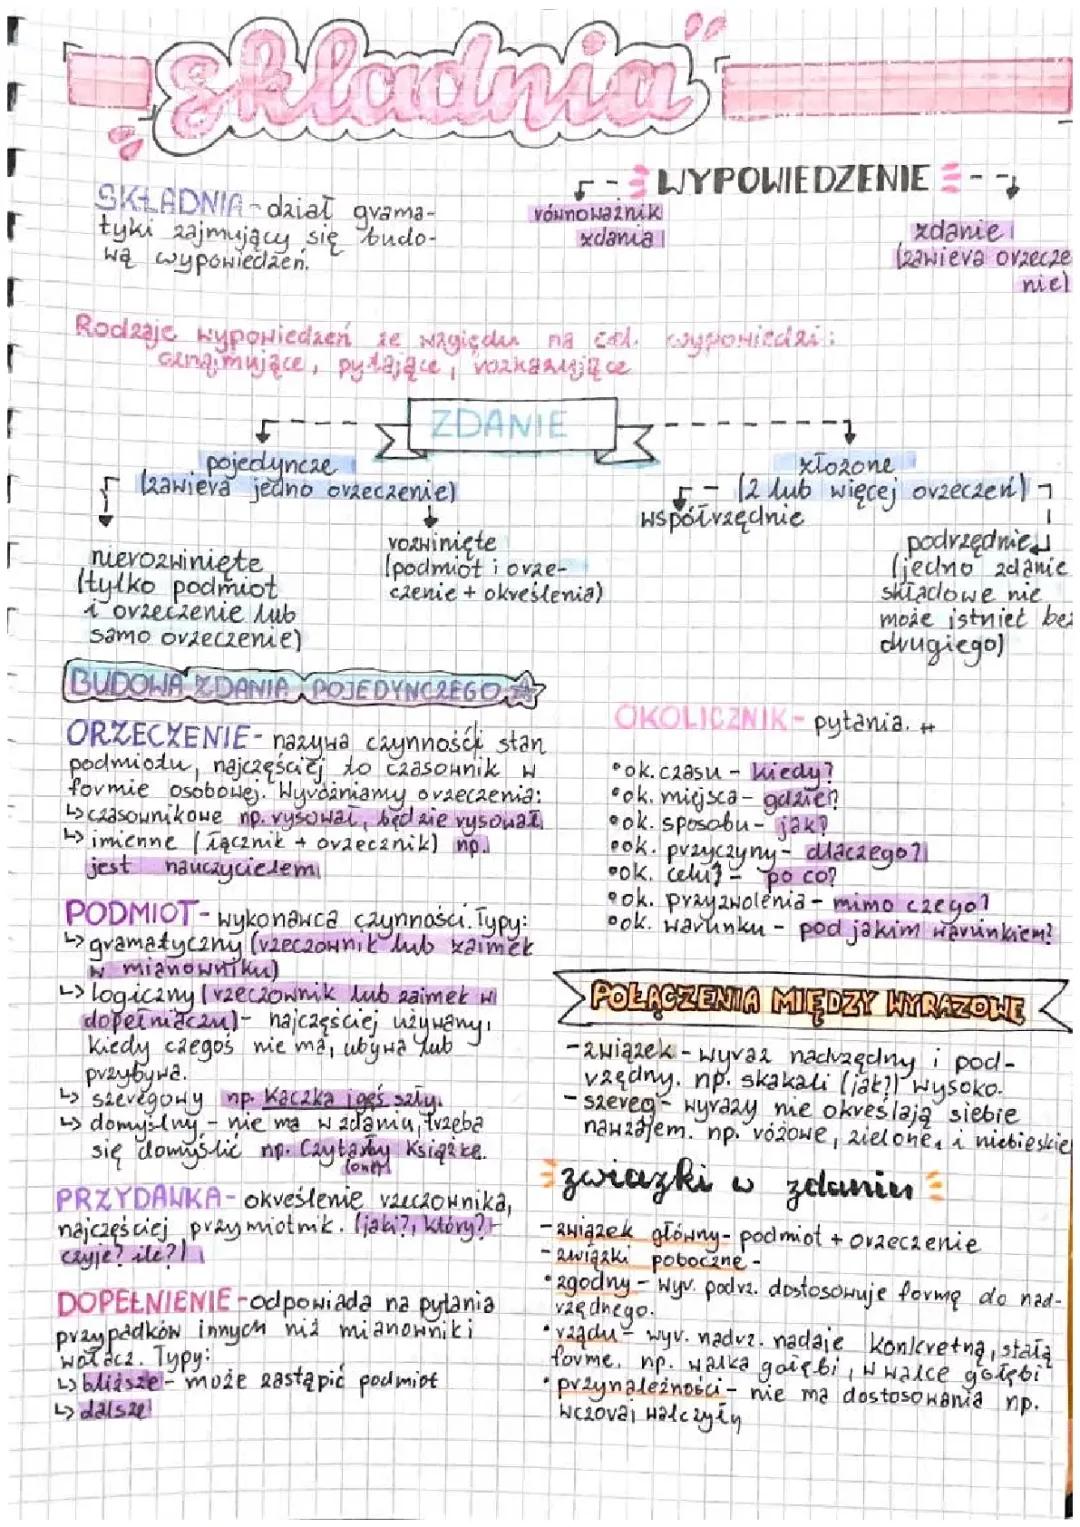 Składnia
SKŁADNIA - dział grama-
tyki zajmujący się budo-
wą wypowiedzeń.
WYPOWIEDZENIE
równoważnik
zdania
zdanie
(zawiera orzecze
nie)
Rodzaje wypowiedzeń ze względu na cel wypowiedzi:
oznajmujące, pytające, rozkazujące
ZDANIE
pojedyncze
(zawiera jedno orzeczenie)
nierozwinięte
(tylko podmiot
i orzeczenie lub
samo orzeczenie)
rozwinięte
(podmiot i orze-
czenie + określenia)
złożone
(2 lub więcej orzeczeń)
współrzędnie
podrzędnie
(jedno zdanie
składowe nie
może istnieć bez
drugiego)
BUDOWA ZDANIA POJEDYNCZEGO
ORZECZENIE - nazywa czynność i stan
podmiotu, najczęściej to czasownik w
formie osobowej. Wyróżniamy orzeczenia:
↳ czasownikowe np. rysował, będzie rysował
↳ imienne (łącznik + orzecznik) np.
jest nauczycielem
PODMIOT - wykonawca czynności. Typy:
↳ gramatyczny (rzeczownik lub zaimek
w mianowniku)
↳ logiczny (rzeczownik lub zaimek w
dopełniaczu) - najczęściej używany,
kiedy czegoś nie ma, ubywa lub
przybywa.
↳ szeregowy np. Kaczka i gęś szły.
↳ domyślny - nie ma w zdaniu, trzeba
się domyślić np. Czytałby książkę.
(on)
PRZYDAWKA - określenie rzeczownika,
najczęściej przymiotnik. (jaki?, który?
czyje? ile?)
DOPEŁNIENIE - odpowiada na pytania
przypadków innych niż mianownik i
wołacz. Typy:
↳ bliższe - może zastąpić podmiot
↳ dalsze
OKOLICZNIK - pytania.
• ok. czasu - kiedy?
• ok. miejsca - gdzie?
• ok. sposobu - jak?
• ok. przyczyny - dlaczego?
• ok. celu - po co?
• ok. przyzwolenia - mimo czego?
• ok. warunku - pod jakim warunkiem?
POŁĄCZENIA MIĘDZY WYRAZOWE
- związek - wyraz nadrzędny i pod-
rzędny. np. skakali (jak?) wysoko.
- szereg - wyrazy nie określają siebie
nawzajem. np. różowe, zielone, i niebieskie
związki w zdaniu
- związek główny - podmiot + orzeczenie
- związki poboczne -
• zgodny - wyr. podrz. dostosowuje formę do nad-
rzędnego.
• rządu - wyr. nadrz. nadaje konkretną, stałą
formę, np. walka gołębi, w walce gołębi
• przynależności - nie ma dostosowania np.
wczoraj walczyły